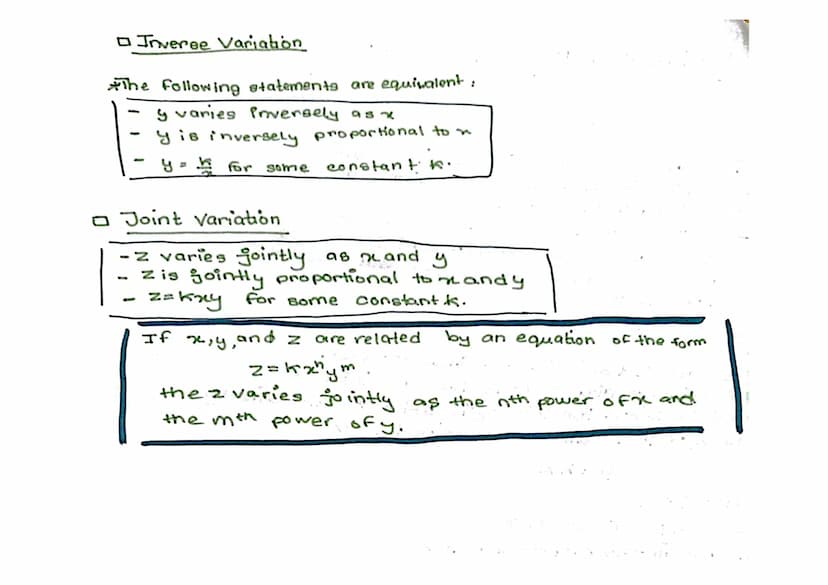 □ Inverse Variation
*The following statements are equivalent:
- y varies inversely as x
- y is inversely proportional to x
- y = k/x for some constant k.
□ Joint Variation
- z varies jointly as x and y
- z is jointly proportional to x and y
- z = kxy for some constant k.
If x, y, and z are related by an equation of the form
z = kxⁿyᵐ.
the z varies jointly as the nth power of x and
the mth power of y.